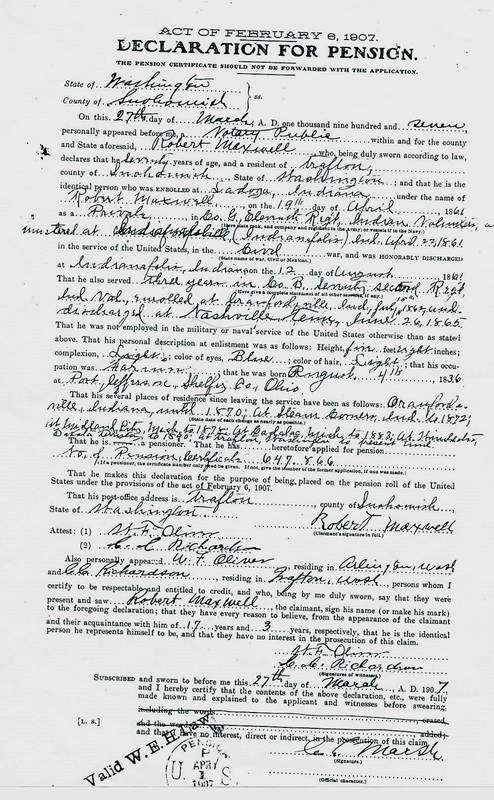 ACT OF FEBRUARY 6, 1907.
DECLARATION FOR PENSION.
THE PENSION CERTIFICATE SHOULD NOT BE FORWARDED WITH THE APPLICATION.
State of Washington
County of Snohomish } ss.
On this 27th day of March, A. D. one thousand nine hundred and seven,
personally appeared before me, a Notary Public within and for the county
and State aforesaid, Robert Maxwell, who, being duly sworn according to law,
declares that he is seventy years of age, and a resident of Trafton,
county of Snohomish, State of Washington; and that he is the
identical person who was ENROLLED at Ladoga, Indiana under the name of
Robert Maxwell, on the 19th day of April, 1861
as a Private, in Co. G, Eleventh Regt, Indian Volunteers,
mustered at Indianapolis (Indianapolis) Ind. April 22, 1861.
in the service of the United States, in the Civil war, and was HONORABLY DISCHARGED
(State name of war, Civil or Mexican.)
at Indianapolis, Indiana on the 12 day of August, 1861
That he also served three years in Co B, Seventy second Regt
(Here give a complete statement of all other services, if any.)
Ind Vol, enrolled at Crawfordsville Ind, July, 1862, and
discharged at Nashville Tenn, June 26, 1865
That he was not employed in the military or naval service of the United States otherwise than as stated
above. That his personal description at enlistment was as follows: Height, five feet eight inches;
complexion, Light; color of eyes, Blue; color of hair, Light; that his occu-
pation was Farmer; that he was born August 4th, 1836
at Port Jefferson, Shelby Co, Ohio.
That his several places of residence since leaving the service have been as follows: Crawfords-
ville, Indiana, until 1870; At Ind. to 1872;
(State date of each change as nearly as possible.)
at Midland City, Mich to 1878 At Cadillac Mich to 1883; At
Dakota to 1890; at Trafton, Wash
That he is a pensioner. That he has heretofore applied for pension
No. of Pension Certificate 647.866
(If a pensioner, the certificate number only need be given. If not, give the number of the former application, if one was made.)
That he makes this declaration for the purpose of being placed on the pension roll of the United
States under the provisions of the act of February 6, 1907.
That his post-office address is Trafton county of Snohomish,
State of Washington
Robert Maxwell
(Claimant's signature in full.)
Attest: (1) W. F. Oliver
(2) C. C. Richardson
Also personally appeared W. F. Oliver, residing in Arlington, Wash
and C. C. Richardson, residing in Trafton, Wash, persons whom I
certify to be respectable and entitled to credit, and who, being by me duly sworn, say that they were
present and saw Robert Maxwell, the claimant, sign his name (or make his mark)
to the foregoing declaration; that they have every reason to believe, from the appearance of the claimant
and their acquaintance with him of 17 years and 3 years, respectively, that he is the identical
person he represents himself to be, and that they have no interest in the prosecution of this claim.
W. F. Oliver
C. C. Richardson
(Signatures of witnesses.)
SUBSCRIBED and sworn to before me this 27th day of March, A. D. 1907,
and I hereby certify that the contents of the above declaration, etc., were fully
made known and explained to the applicant and witnesses before swearing,
including the words, erased,
[L. S.] and the words, added;
and that I have no interest, direct or indirect, in the prosecution of this claim.
(Signature.)
(Official character.)
Valid W. E. H.
PENSION
U. S.
APR 1
1907